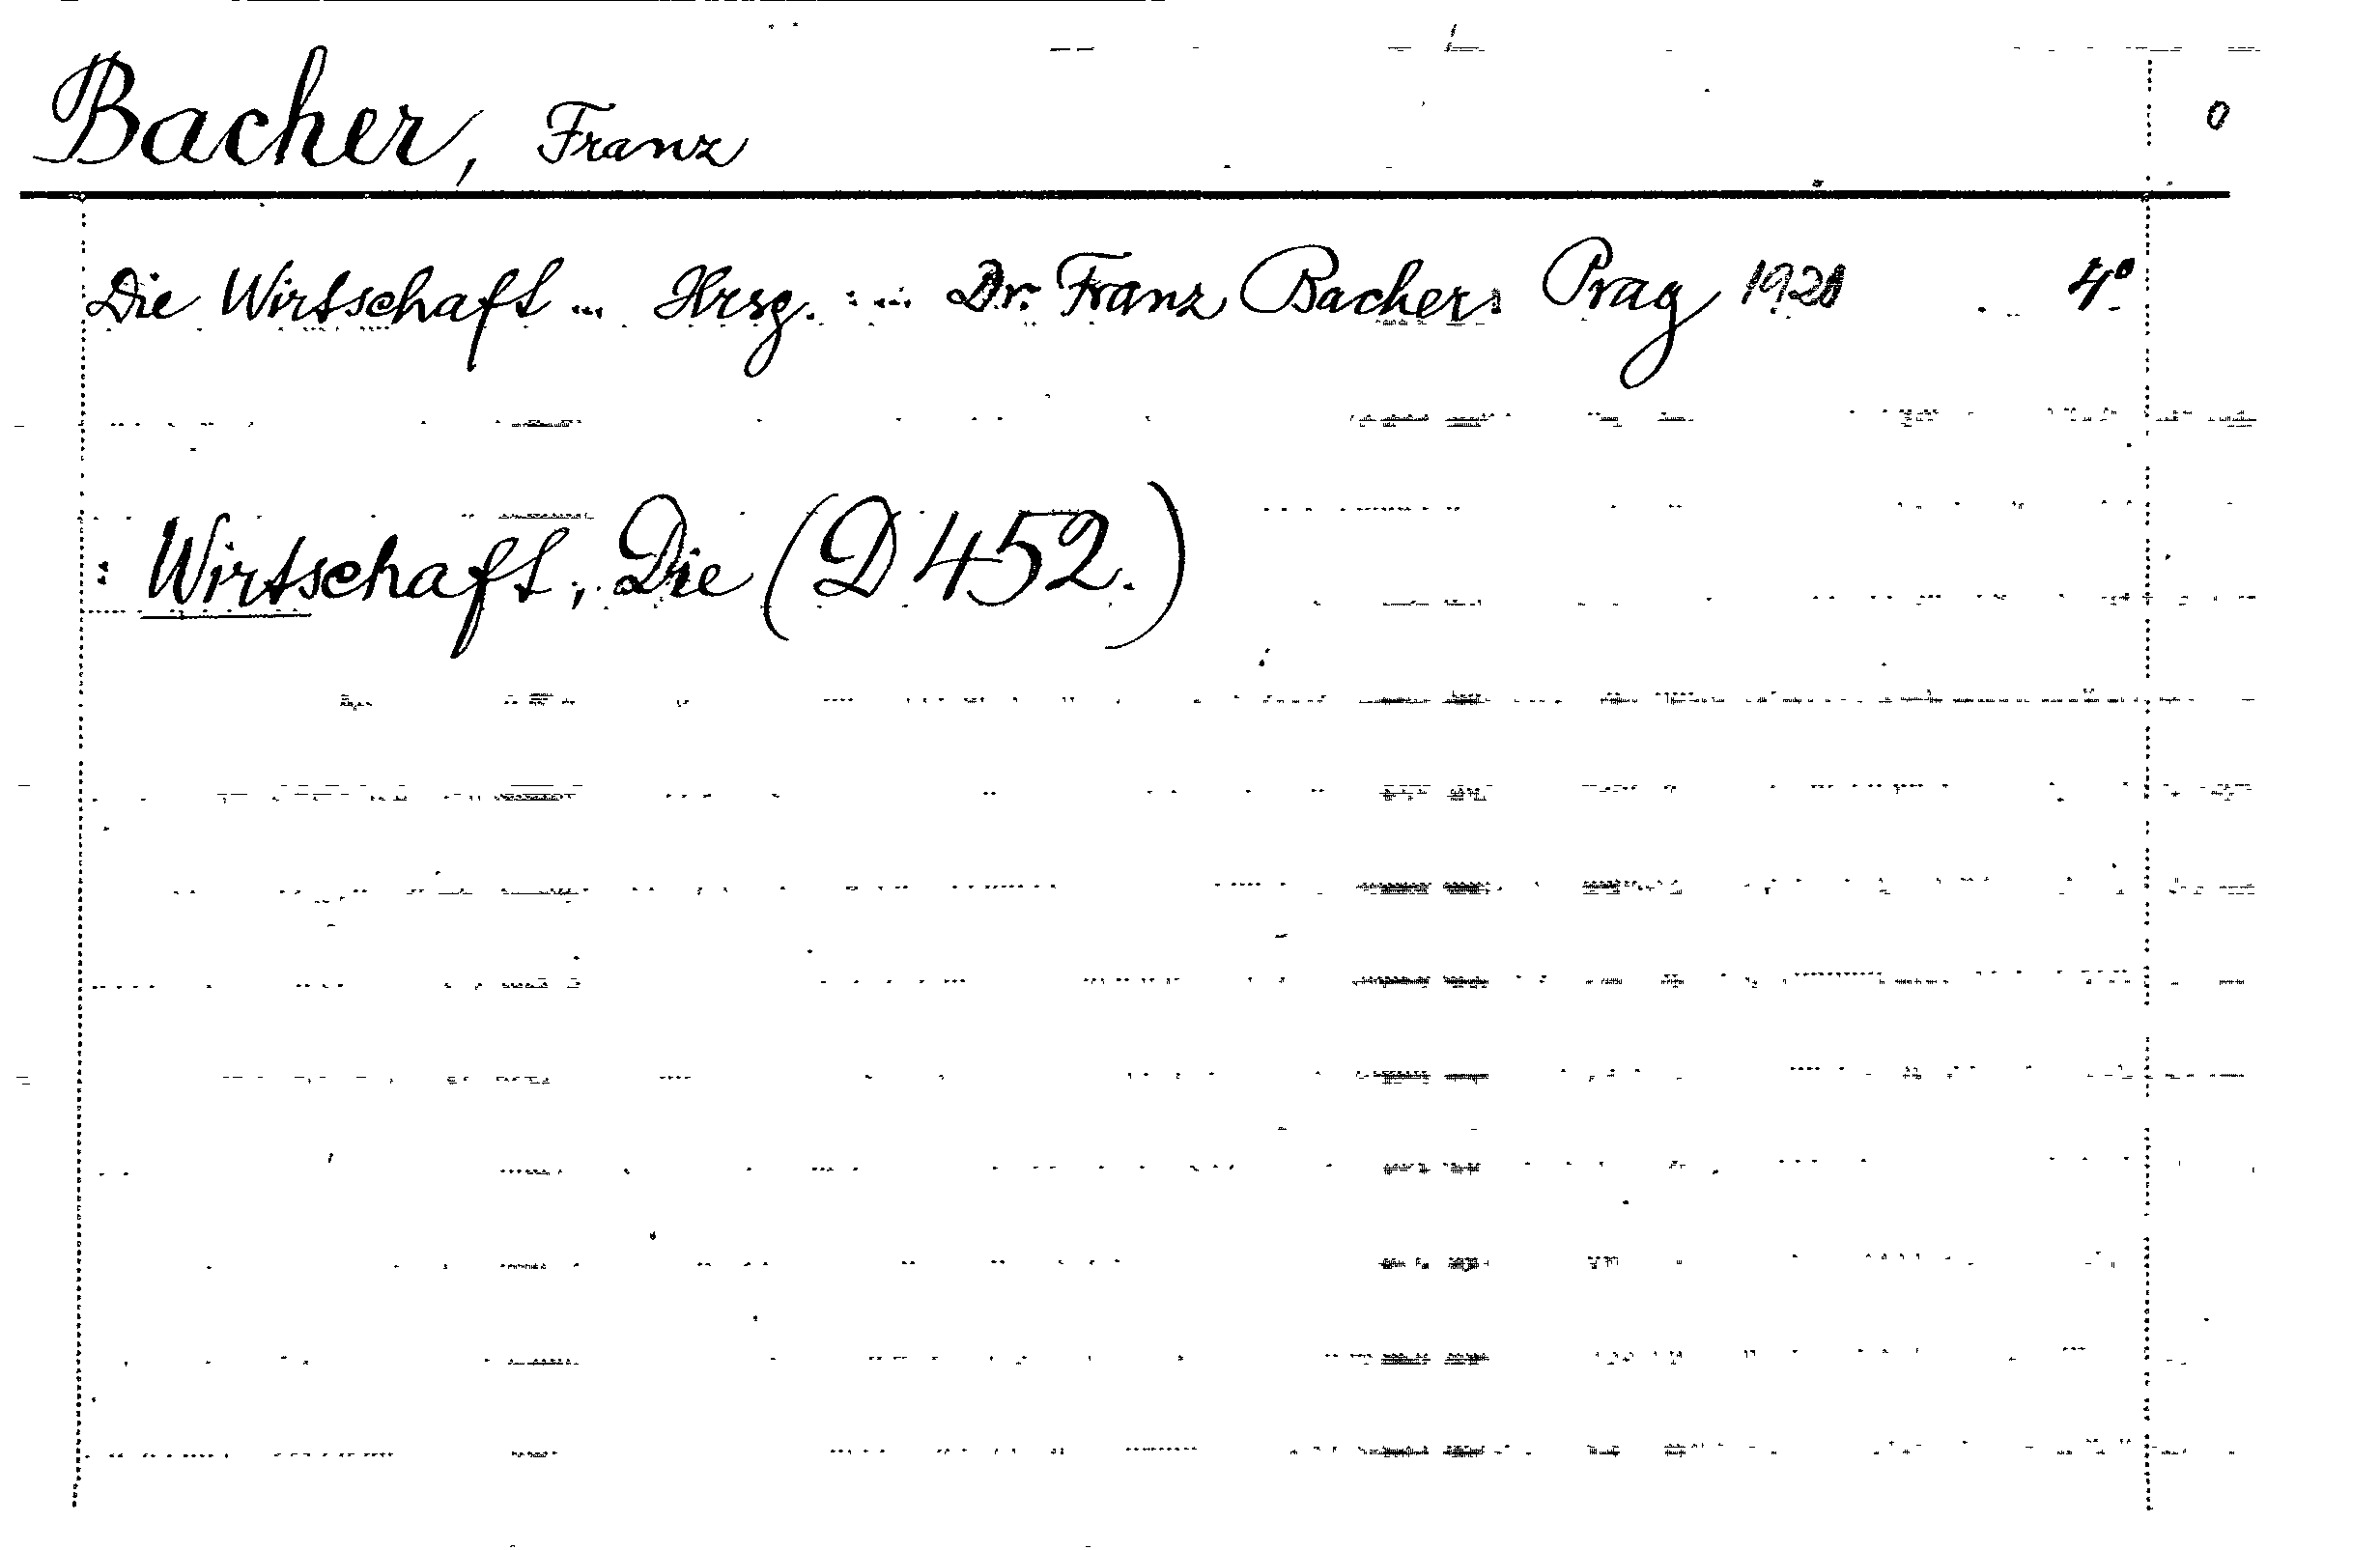 Bacher, Franz 0
Die Wirtschaft ... Hrsg. : ... Dr. Franz Bacher. Prag 1920 4°
: Wirtschaft, Die (D 452.)